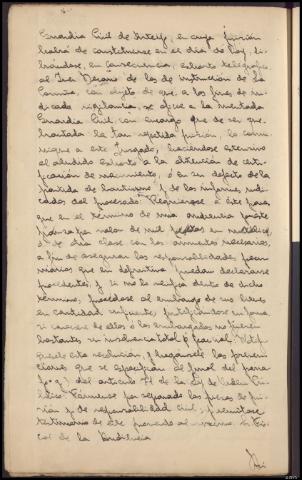 Guardia Civil de Arteijo, en cuya prisión
habrá de constituirse en el día de hoy, li-
brándose, en consecuencia, exhorto telegráfico
al Juez Decano de los de instrucción de La
Coruña, con objeto de que, a los fines de in-
dicada vigilancia, se oficie a la mentada
Guardia Civil con encargo que de ser que-
brantada la tan repetida prisión, lo comu-
nique a este Juzgado, haciéndose extensivo
el aludido exhorto a la obtención de certi-
ficación de nacimiento, ó en su defecto de la
partida de bautismo y de los informes indi-
cados del procesado. Requiérase a éste para
que en el término de una audiencia preste
fianza por valor de mil pesetas en metálico,
ó de otra clase con los aumentos necesarios,
a fin de asegurar las responsabilidades pecu-
niarias que en definitiva puedan declararse
procedentes; y si no lo verifica dentro de dicho
término, procédase al embargo de sus bienes
en cantidad suficiente, justificándose en forma,
si carece de ellos ó los embargados no fueren
bastantes, su insolvencia total ó parcial. Notifí-
quesele esta resolución, y háganse las preven-
ciones que se especifican al final del párra-
fo del artículo de la Ley de Orden Pú-
blico. Fórmense por separado las piezas de pri-
sión y de responsabilidad civil; y remítase
testimonio de este proveído al Fis-
cal de la Audiencia